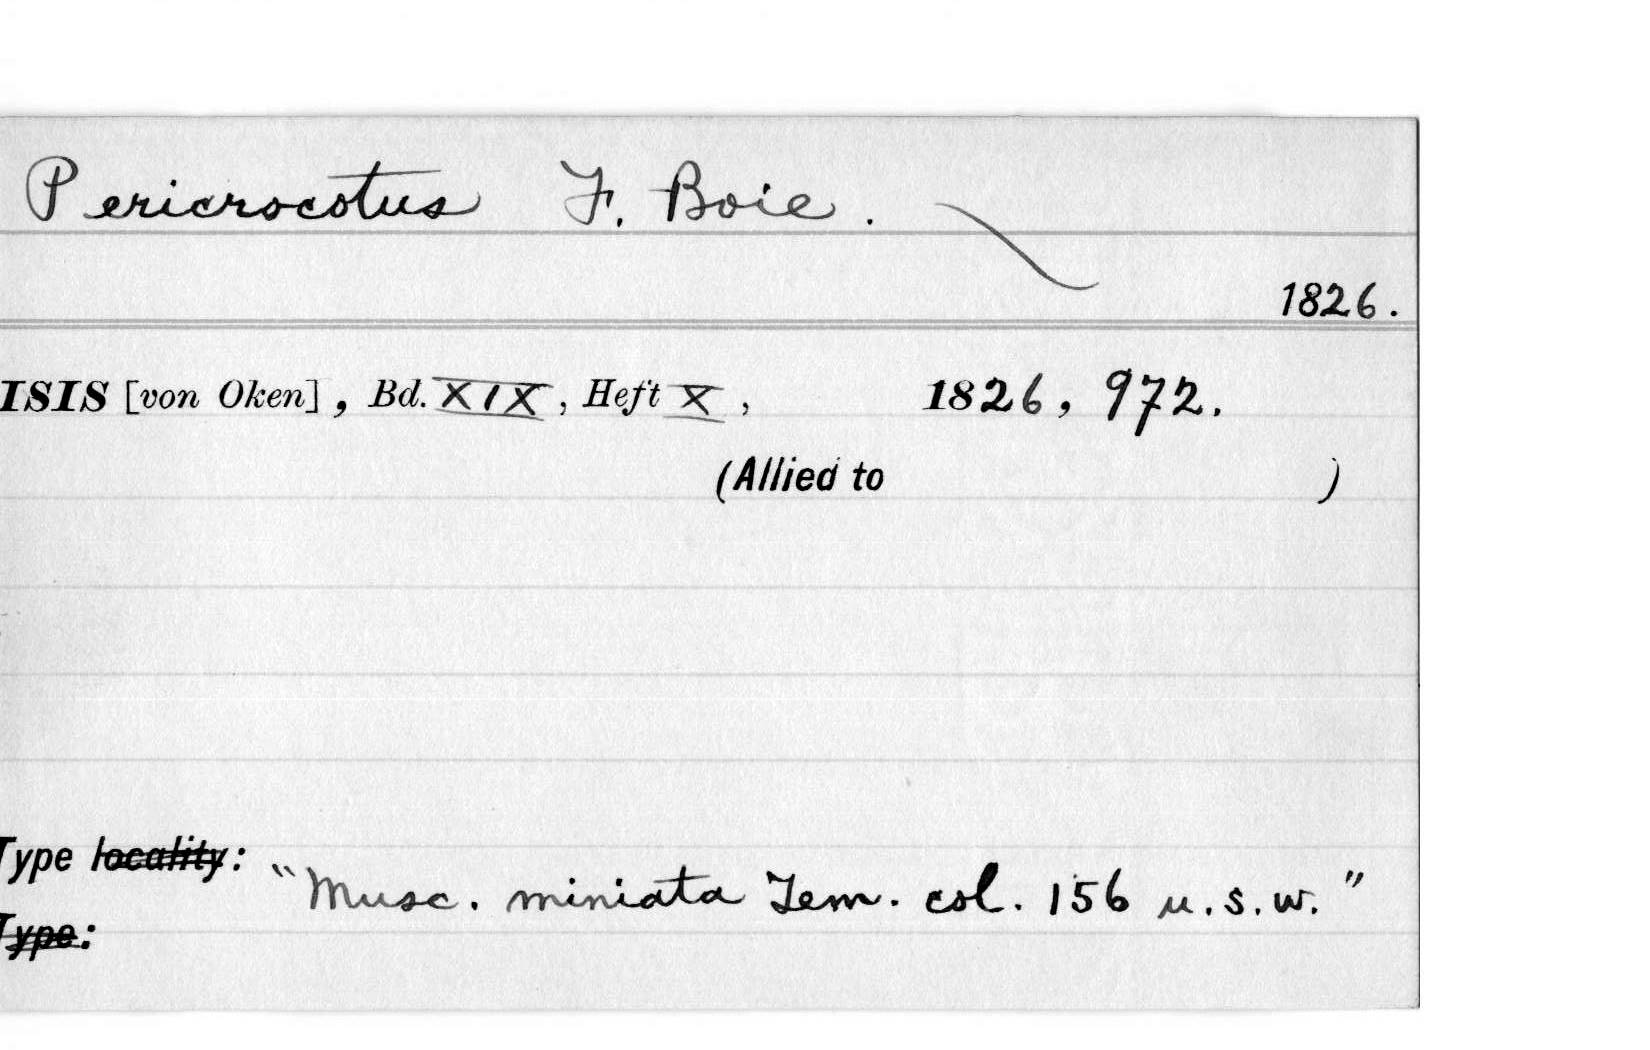 Pericrocotus F. Boie.
1826.
ISIS [von Oken], Bd. XIX, Heft X, 1826, 972.
(Allied to )
Type locality:
"Musc. miniata Tem. col. 156 u.s.w."
Type: